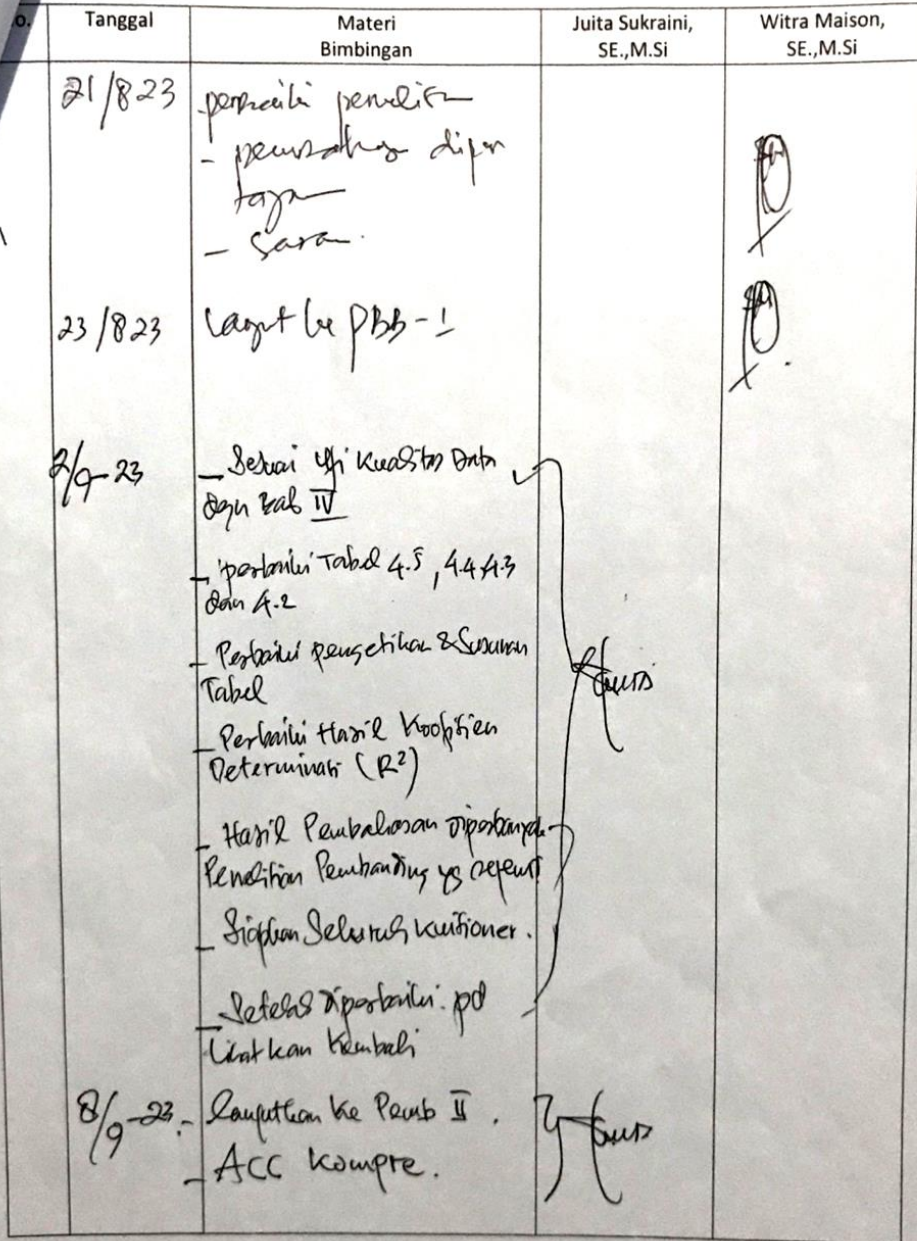 o.
Tanggal
Materi
Bimbingan
Juita Sukraini,
SE.,M.Si
Witra Maison,
SE.,M.Si
21/8 23
perbaiki penelitian
- dipertajam
- Saran.
23/8 23
Lanjut ke PBB-1
2/9-23
- Sesuai Uji Kualitas Data
dgn Bab IV
- perbaiki Tabel 4.5, 4.4 4.3
dan 4.2
- Perbaiki pengetikan & Susunan
Tabel
- Perbaiki Hasil Koofisien
Determinasi (R²)
- Hasil Pembahasan diperbanyak
Penelitian Pembanding yg
- Siapkan Seluruh kuisioner.
- Setelah diperbaiki. pd
lihatkan Kembali
8/9-23.
- Lanjutkan ke Pemb II.
- ACC Kompre.